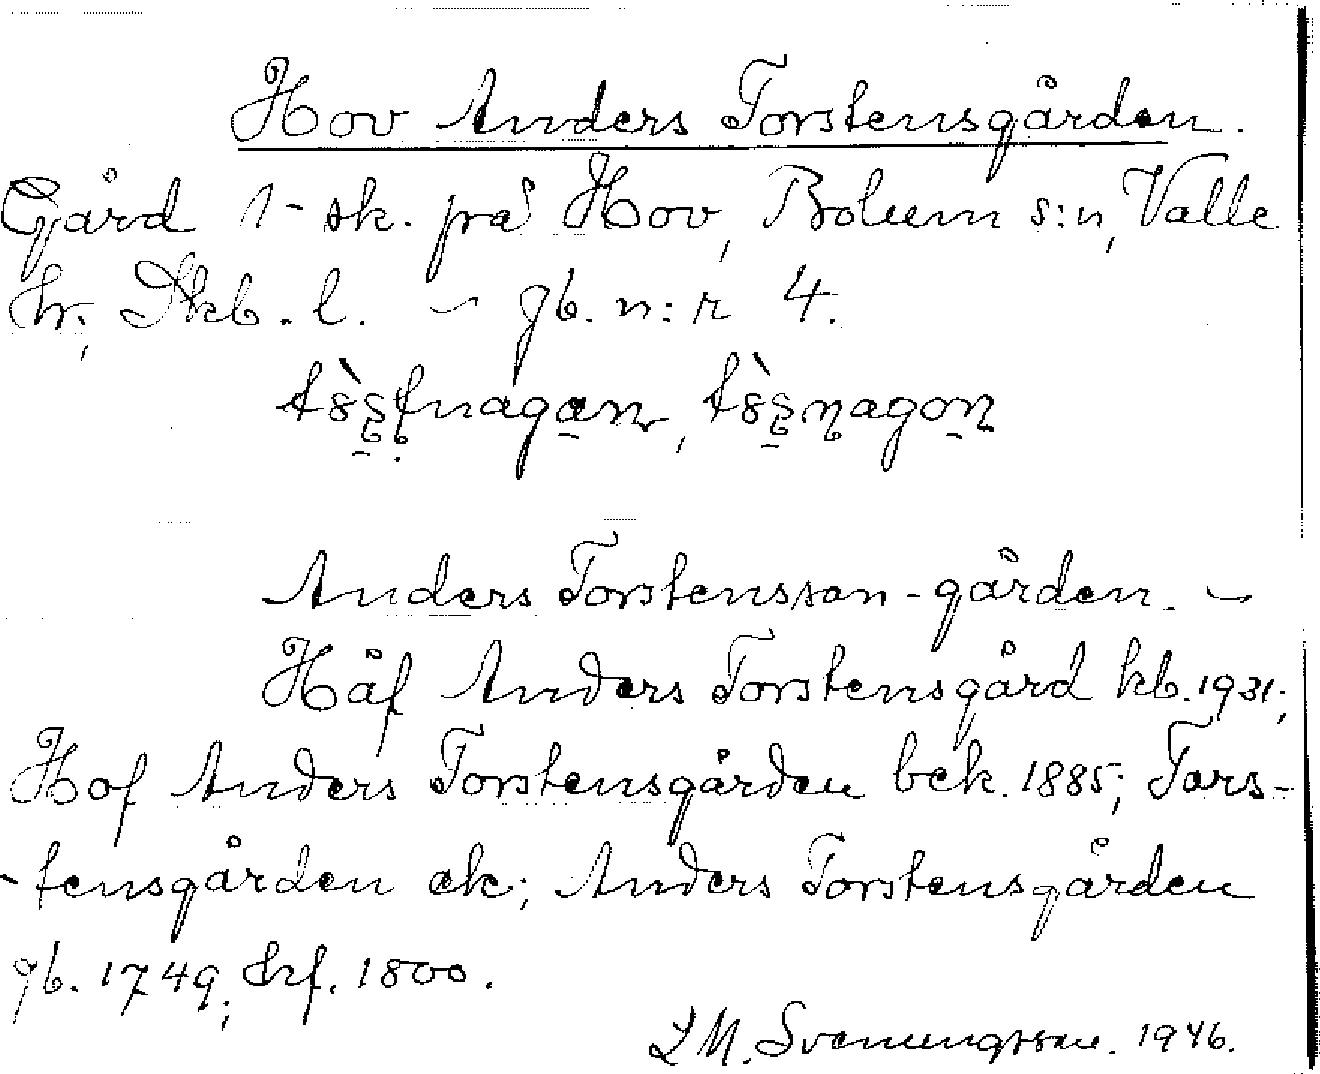 Hov Anders Torstensgården.
Gård 1 sk. på Hov, Bolum s:n, Valle
hr, Skb. l. – jb. n:r 4.
Anders Torstensson-gården. –
Håf Anders Torstensgård kb. 1931;
Hof Anders Torstensgården bek. 1885; Tors-
-tensgården ek; Anders Torstensgården
jb. 1749; Skf. 1800.
L M. Svenungsson. 1946.